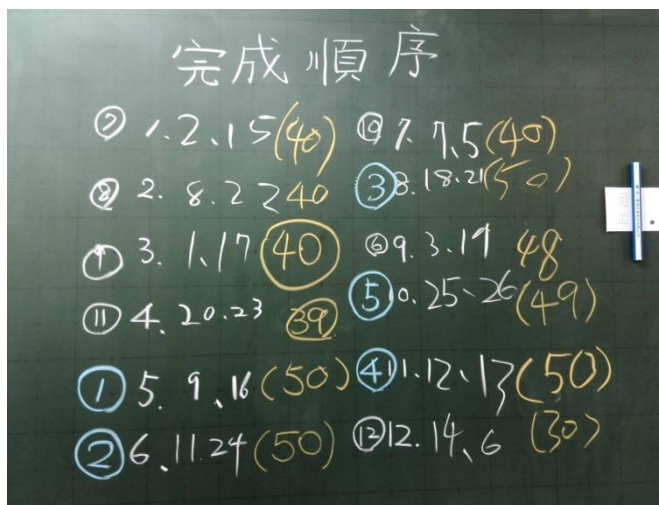 完成順序
⑦ 1. 2、15 (40)
⑧ 2. 8. 22 40
⑨ 3. 1、17 40
⑪ 4. 20.23 39
① 5. 9、16 (50)
② 6. 11. 24 (50)
⑩ 7. 7、5 (40)
③ 8. 18.21 (50)
⑥ 9. 3. 19 48
⑤ 10. 25-26 (49)
④ 11. 12、13 (50)
⑫ 12. 14、6 (30)